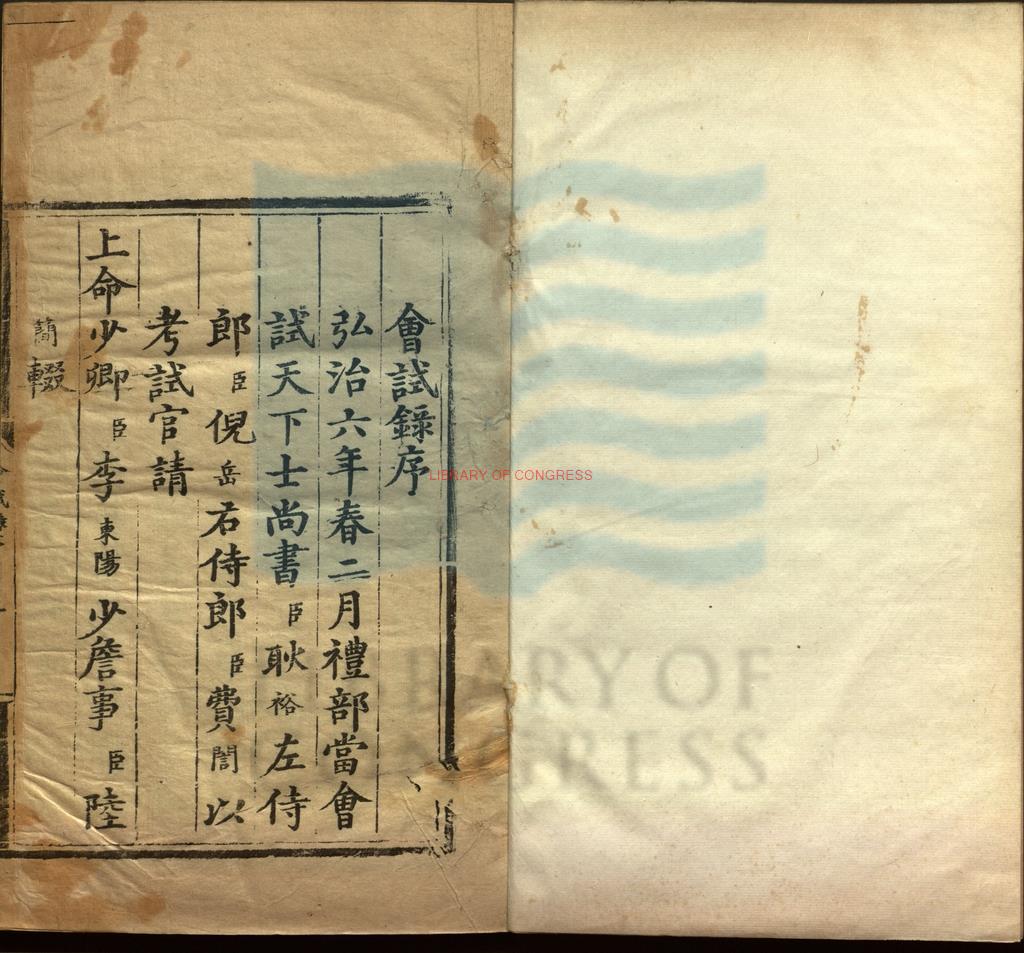 會試錄序
弘治六年春二月禮部當會
試天下士尚書臣耿裕左侍
郎臣倪岳右侍郎臣費誾以
考試官請
上命少卿臣李東陽少詹事臣陸
簡
LIBRARY OF CONGRESS